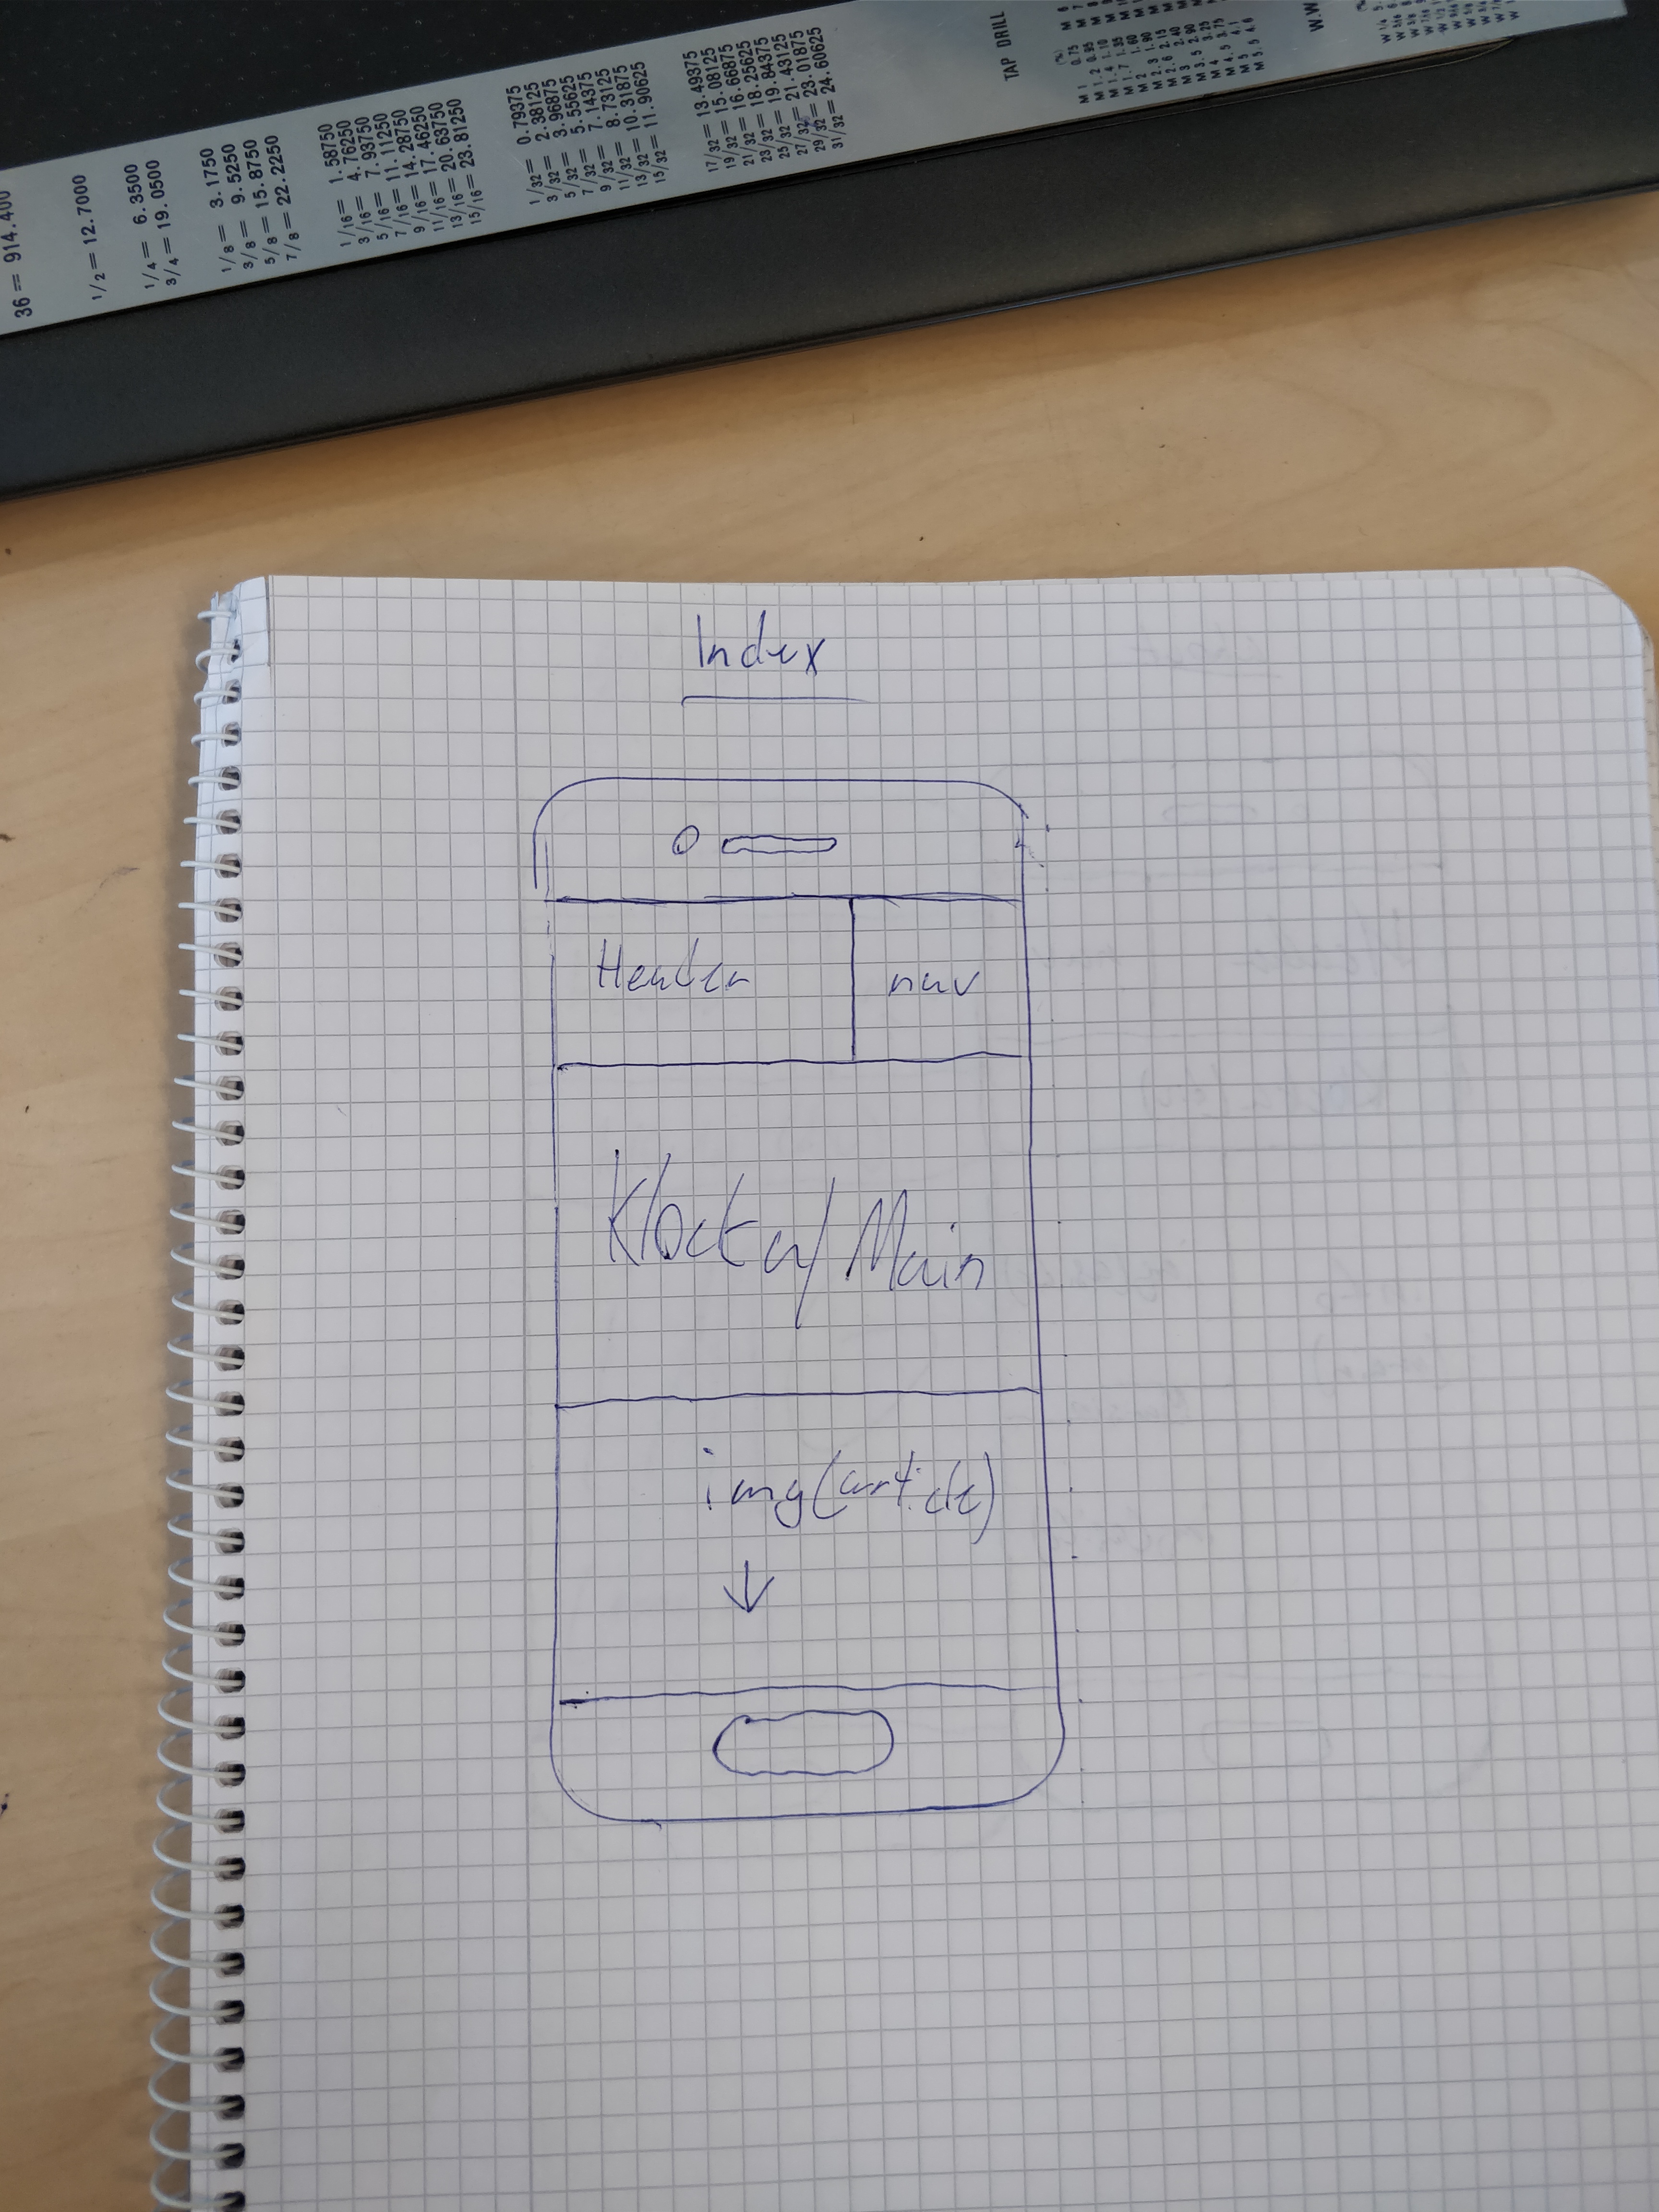 36 = 914.400
1/2 = 12.7000
1/4 = 6.3500
3/4 = 19.0500
1/8 = 3.1750
3/8 = 9.5250
5/8 = 15.8750
7/8 = 22.2250
1/16 = 1.58750
3/16 = 4.76250
5/16 = 7.93750
7/16 = 11.11250
9/16 = 14.28750
11/16 = 17.46250
13/16 = 20.63750
15/16 = 23.81250
1/32 = 0.79375
3/32 = 2.38125
5/32 = 3.96875
7/32 = 5.55625
9/32 = 7.14375
11/32 = 8.73125
13/32 = 10.31875
15/32 = 11.90625
17/32 = 13.49375
19/32 = 15.08125
21/32 = 16.66875
23/32 = 18.25625
25/32 = 19.84375
27/32 = 21.43125
29/32 = 23.01875
31/32 = 24.60625
TAP DRILL
Index
Header nav
Klocka/Main
img(article)
↓